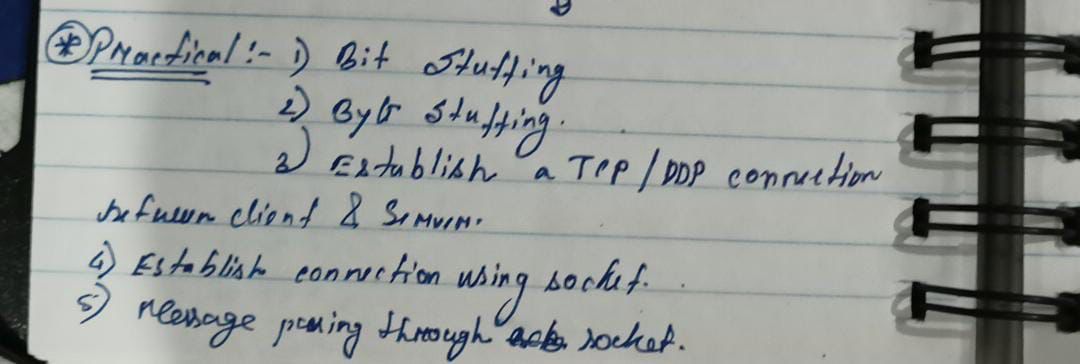 * Practical :- 1) Bit Stuffing
2) Byte Stuffing.
3) Establish a TCP / DDP connection
between client & Server.
4) Establish connection using socket.
5) Message passing through socket.